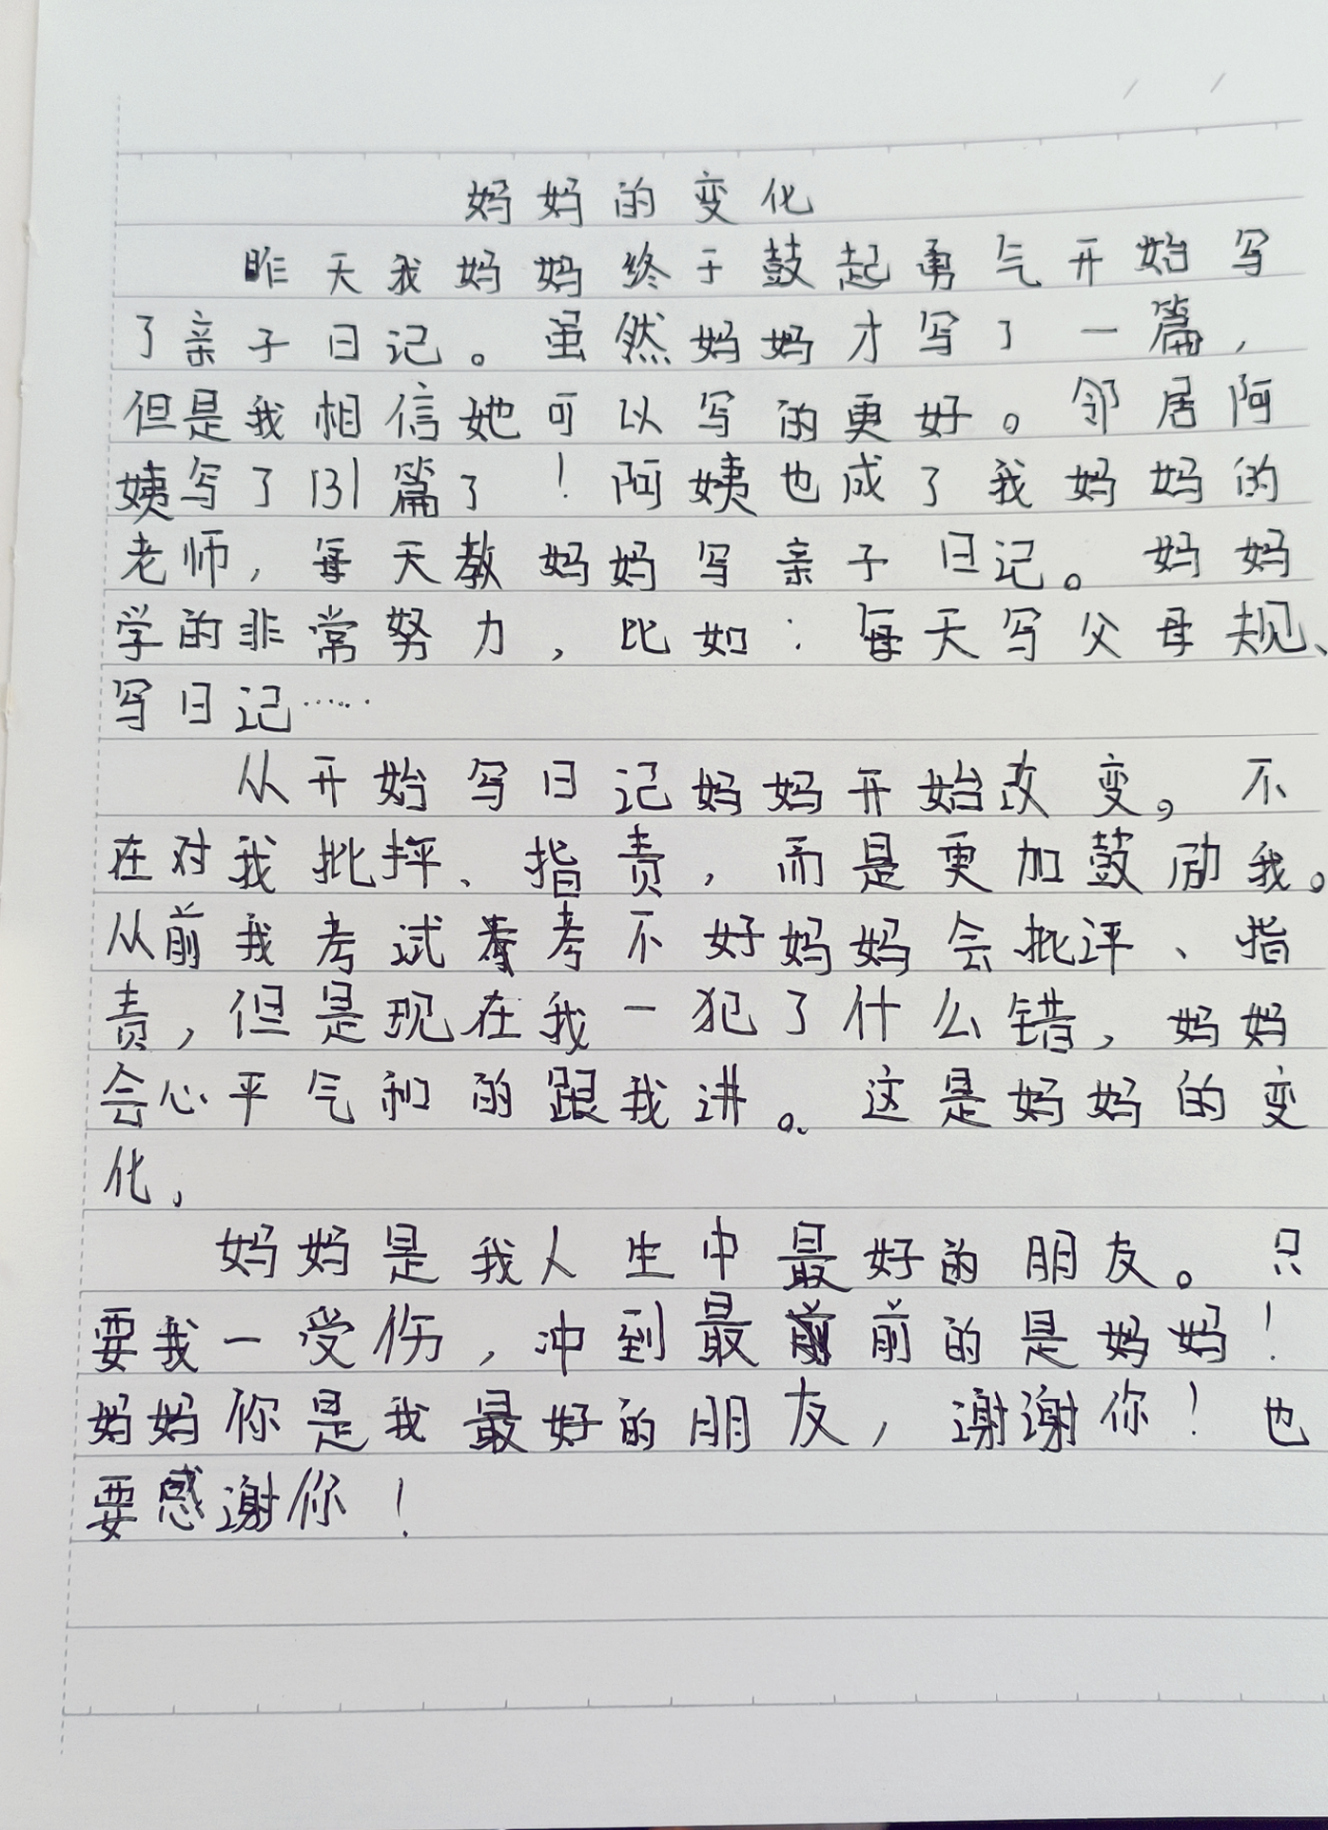 妈妈的变化
昨天我妈妈终于鼓起勇气开始写
了亲子日记。虽然妈妈才写了一篇，
但是我相信她可以写的更好。邻居阿
姨写了131篇了！阿姨也成了我妈妈的
老师，每天教妈妈写亲子日记。妈妈
学的非常努力，比如：每天写父母规、
写日记……
从开始写日记妈妈开始改变。不
在对我批抨、指责，而是更加鼓励我。
从前我考试考不好妈妈会批评、指
责，但是现在我一犯了什么错，妈妈
会心平气和的跟我讲。这是妈妈的变
化，
妈妈是我人生中最好的朋友。只
要我一受伤，冲到最前的是妈妈！
妈妈你是我最好的朋友，谢谢你！也
要感谢你！